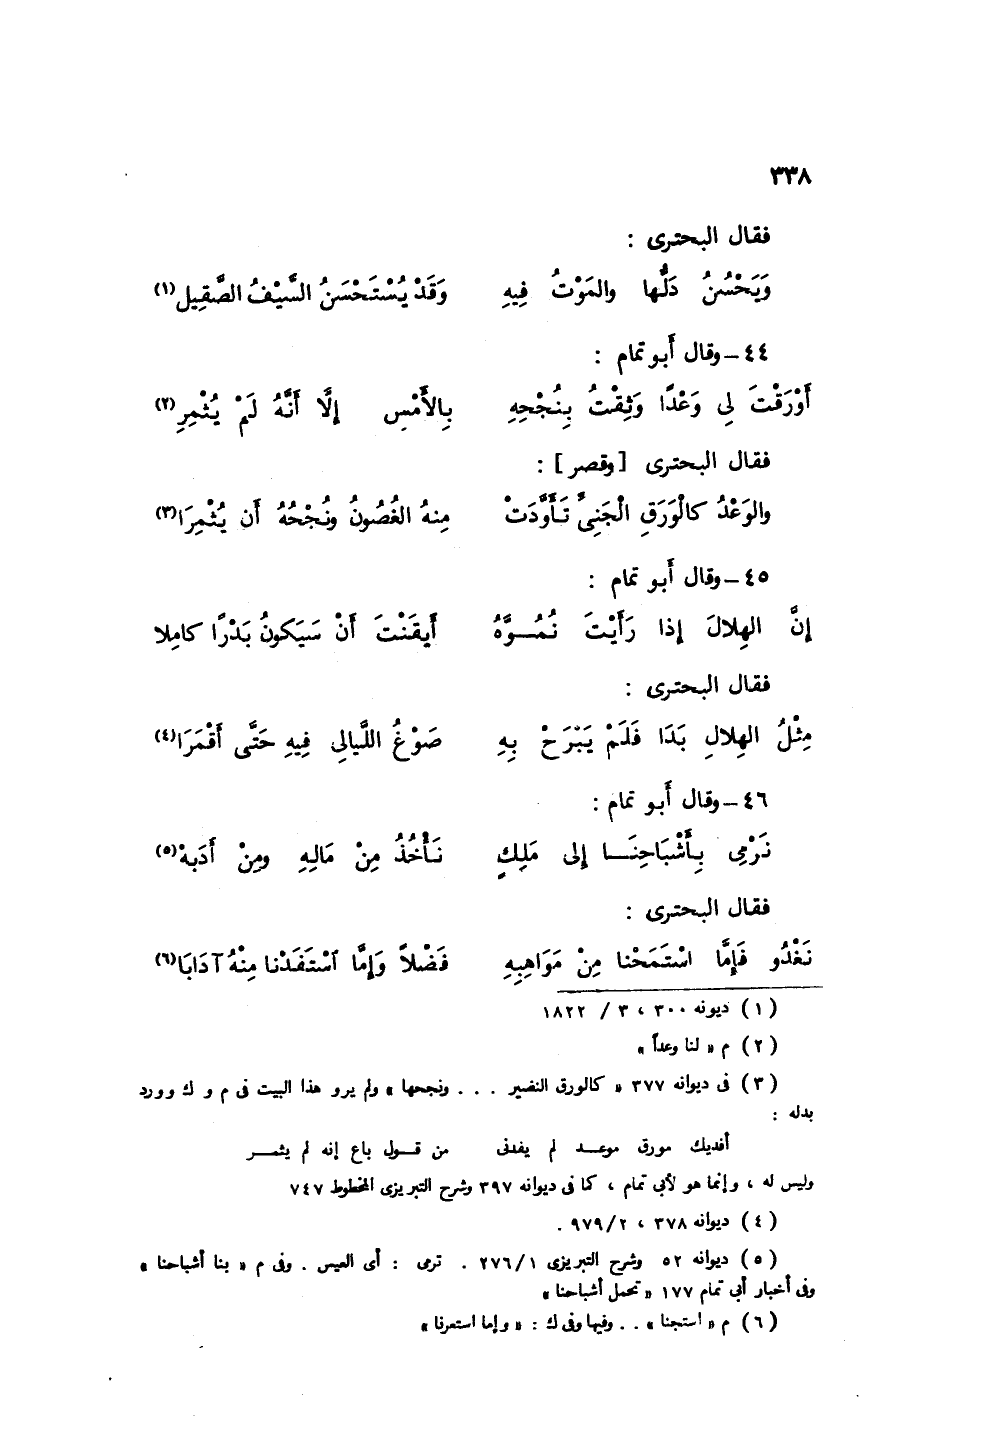 ٣٣٨
فقال البحترى :
وَيَحْسُنُ دَلُّها والمَوْتُ فِيهِ وَقَدْ يُسْتَحْسَنُ السَّيْفُ الصَّقِيل(١)
٤٤ – وقال أَبو تمام :
أَوْرَقْتَ لِى وَعْدًا وَثِقْتُ بِنُجْحِهِ بِالأَمْسِ إِلَّا أَنَّهُ لَمْ يُثْمِرِ(٢)
فقال البحترى [وقصر] :
والوَعْدُ كالْوَرَقِ الْجَنِىِّ تَأَوَّدَتْ مِنهُ الغُصُونُ ونُجْحُهُ أَن يُثْمِرَا(٣)
٤٥ – وقال أَبو تمام :
إِنَّ الهِلالَ إِذا رَأَيْتَ نُمُــوَّهُ أَيقَنْتَ أَنْ سَيَكونُ بَدْرًا كامِلا
فقال البحترى :
مِثْلُ الهِلالِ بَدَا فَلَمْ يَبْرَحْ بِهِ صَوْغُ اللَّيالِى فِيهِ حَتَّى أَقْمَرَا(٤)
٤٦ – وقال أَبو تمام :
نَرْمِى بِأَشْبَاحِنَــا إِلى مَلِكٍ نَأْخُذُ مِنْ مَالِهِ ومِنْ أَدَبهْ(٥)
فقال البحترى :
نَغْدُو فَإِمَّا اسْتَمَحْنا مِنْ مَوَاهِبِهِ فَضْلاً وَإِمَّا اَسْتَفَدْنا مِنْهُ آدَابَا(٦)
(١) ديونه ٣٠٠ ، ٣ / ١٨٢٢
(٢) م « لنا وعداً »
(٣) فى ديوانه ٣٧٧ « كالورق النضير . . . ونجحها » ولم يرو هذا البيت فى م و ك وورد
بدله :
أفديك مورق موعــد لم يفدنى من قــول باغ إنه لم يثمــر
وليس له ، وإنما هو لأبى تمام ، كما فى ديوانه ٣٩٧ وشرح التبريزى المخطوط ٧٤٧
(٤) ديوانه ٣٧٨ ، ٩٧٩/٢ .
(٥) ديوانه ٥٢ وشرح التبريزى ٢٧٦/١ . ترمى : أى العيس . وفى م « بنا أشباحنا »
وفى أخبار أبى تمام ١٧٧ « تحمل أشباحنا »
(٦) م « استجنا » . . وفيها وفى ك : « وإما استعرنا »